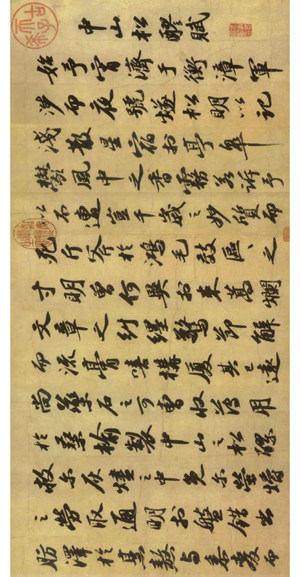 中山松醪賦
始予宵濟于衡漳軍
涉而夜號燧松明以記
淺散星宿於亭皋
鬱風中之香霧若訴予
以不遭豈千歲之妙質而
死斤斧於鴻毛效區區之
寸明曾何異於束蒿爛
文章之糾纆驚節解
而流膏嘻構廈其已遠
尚藥石之可曹收薄用
於桑榆製中山之松醪
救爾灰燼之中免爾螢爝
之勞取通明於盤錯出
肪澤於烹熬與黍麥而